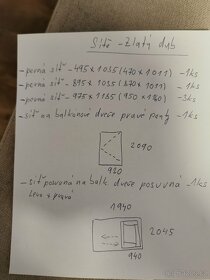 Sítě - Zlatý dub
- pevná síť - 495 x 1035 (470 x 1011) - 1ks
- pevná síť - 895 x 1035 (870 x 1011) - 1ks
- pevná síť - 975 x 1185 (950 x 1160) - 3ks
- síť na balkonové dveře pravé panty - 1ks
2090
920
- síť posuvná na balk dveře posuvná - 1ks
Levá + pravá
1940
2045
940